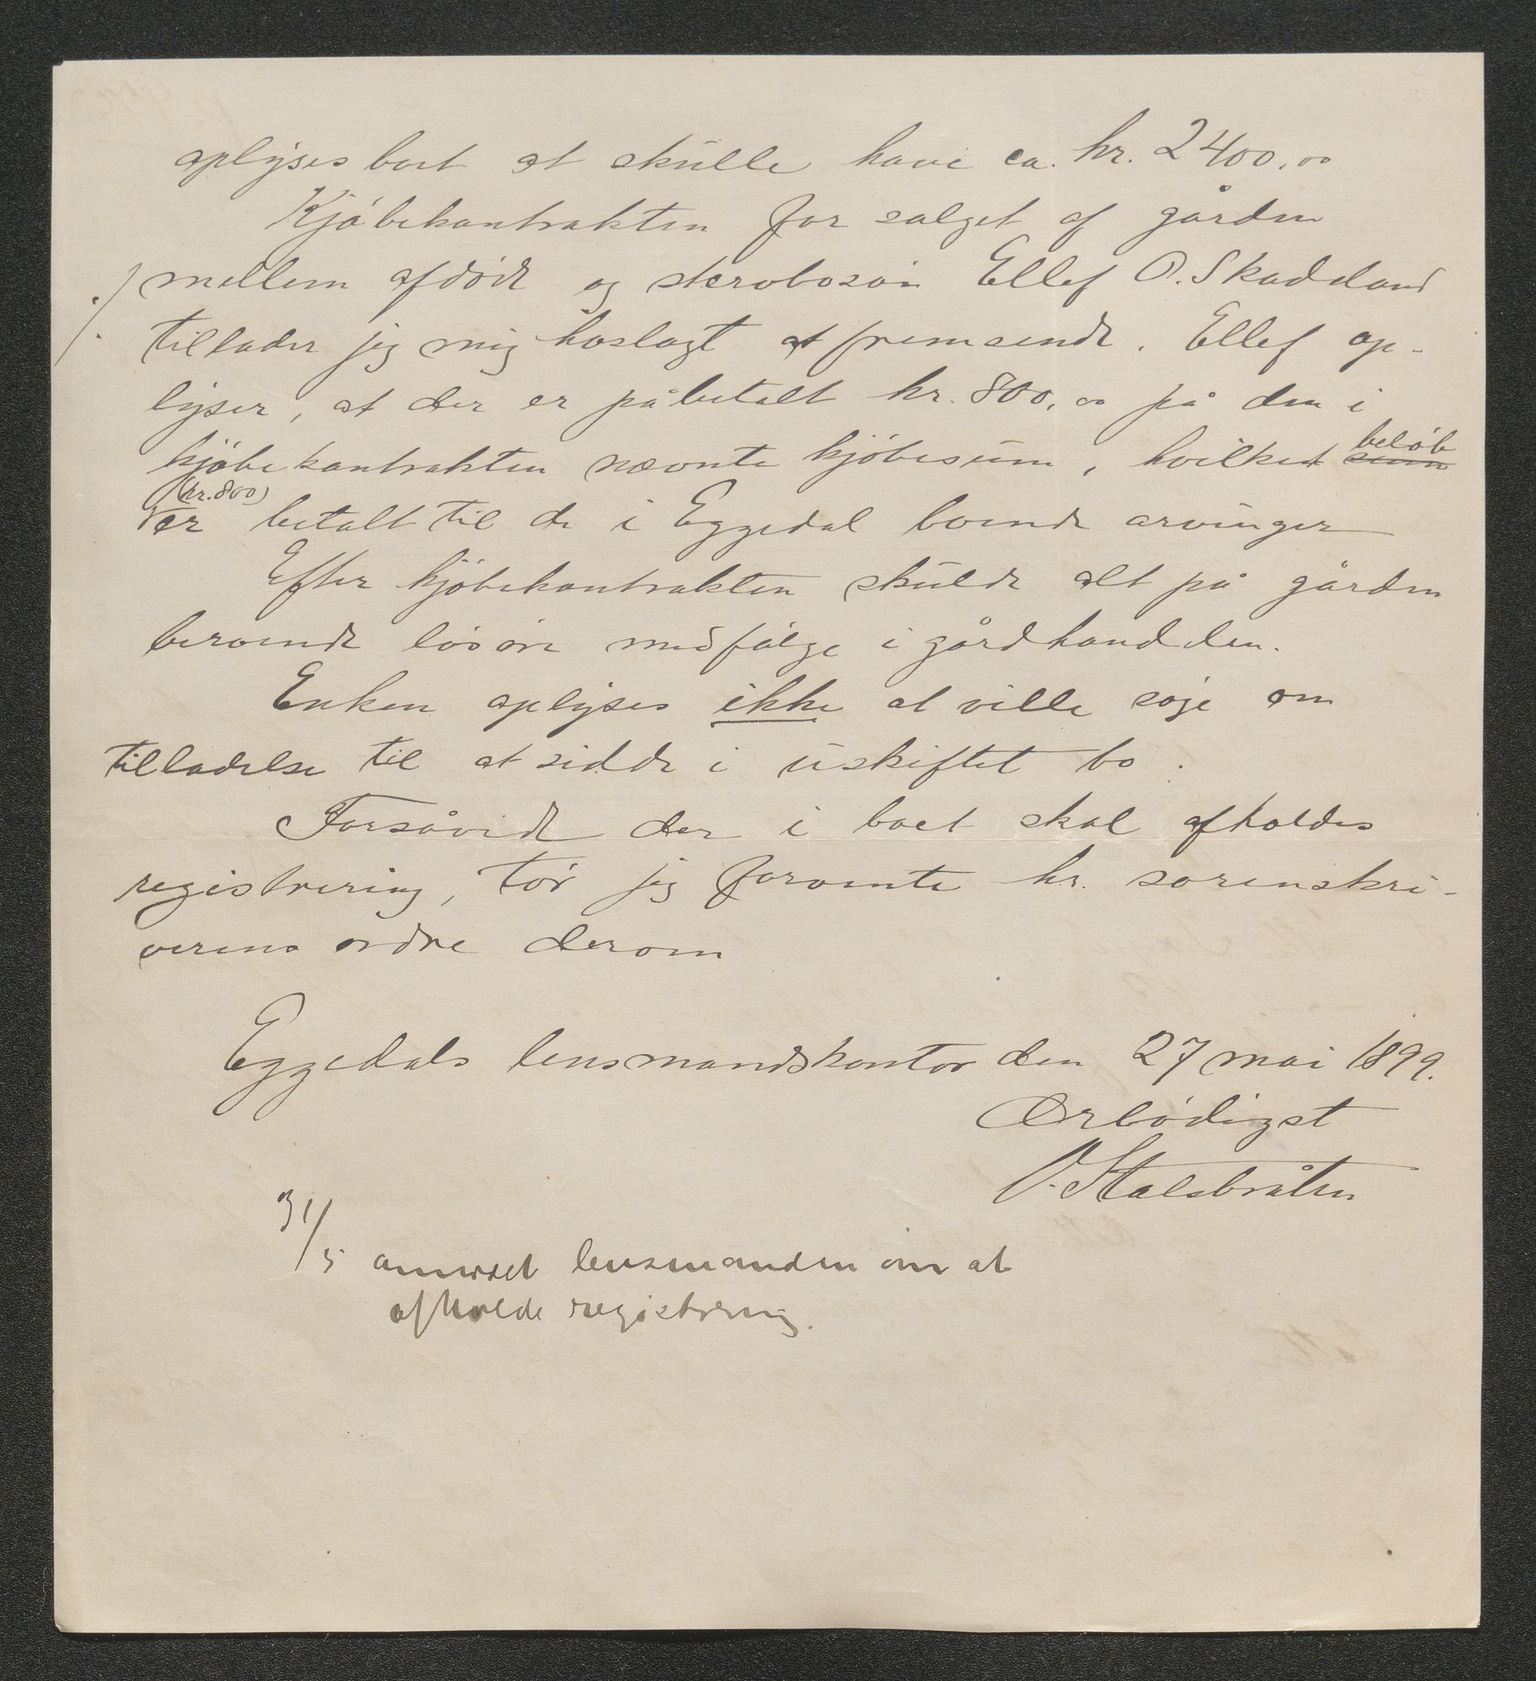 oplyses bort at skulle have ca. kr. 2400,00
Kjöbekontrakten for salget af gården
./. mellem afdöde og Ellef O. Skaddland
tillader jeg mig hoslagt at fremsende. Ellef op-
lyser, at der er påbetalt kr. 800,00 på den i
kjöbekontrakten nævnte kjöbesum, hvilket sum beløb
(kr. 800)
er betalt til de i Eggedal boende arvinger
Efter kjöbekontrakten skulde alt på gården
beroende lösöre medfölge i gårdhandelen.
Enken oplyses ikke at ville söge om
tilladelse til at sidde i uskiftet bo.
Forsåvidt der i boet skal afholdes
registrering, tör jeg forvente hr. sorenskri-
verens ordre derom
Eggedals lensmandskontor den 27 mai 1899.
Ærbödigst
O. Stalsbråten
31/5 anmodet lensmanden om at
afholde registrering.